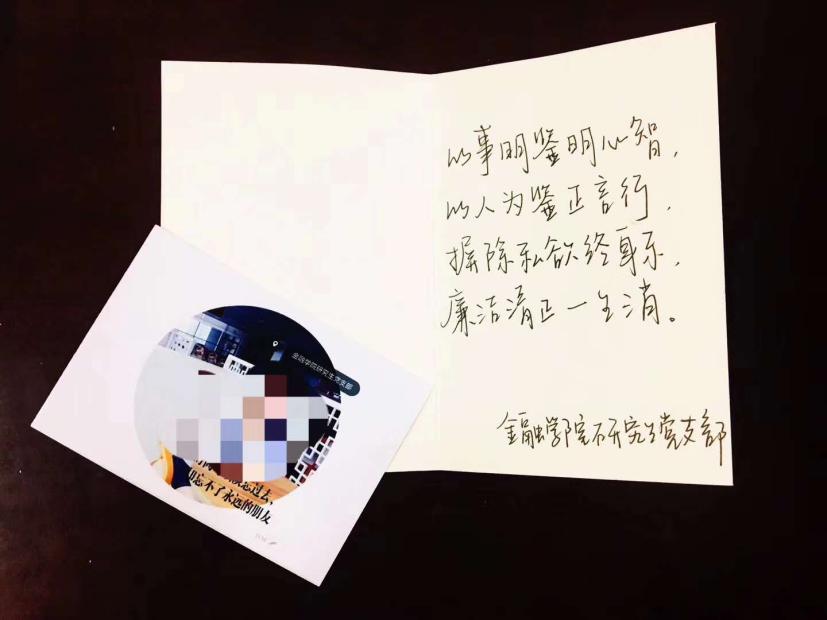 以事明鉴明心智，
以人为鉴正言行，
摒除私欲终身乐，
廉洁清正一生消。
金融学院研究生党支部
金融学院研究生党支部
过去，
忘不了永远的朋友